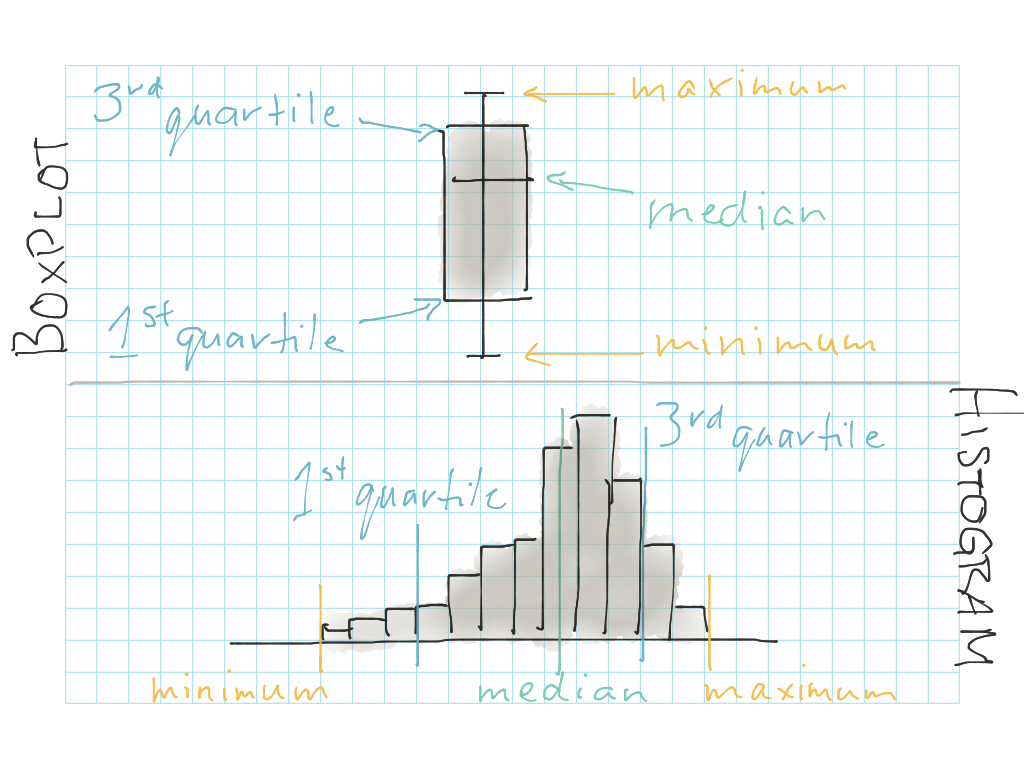 BOXPLOT
3rd
quartile
maximum
median
1st
quartile
minimum
HISTOGRAM
3rd
quartile
1st
quartile
minimum
median
maximum